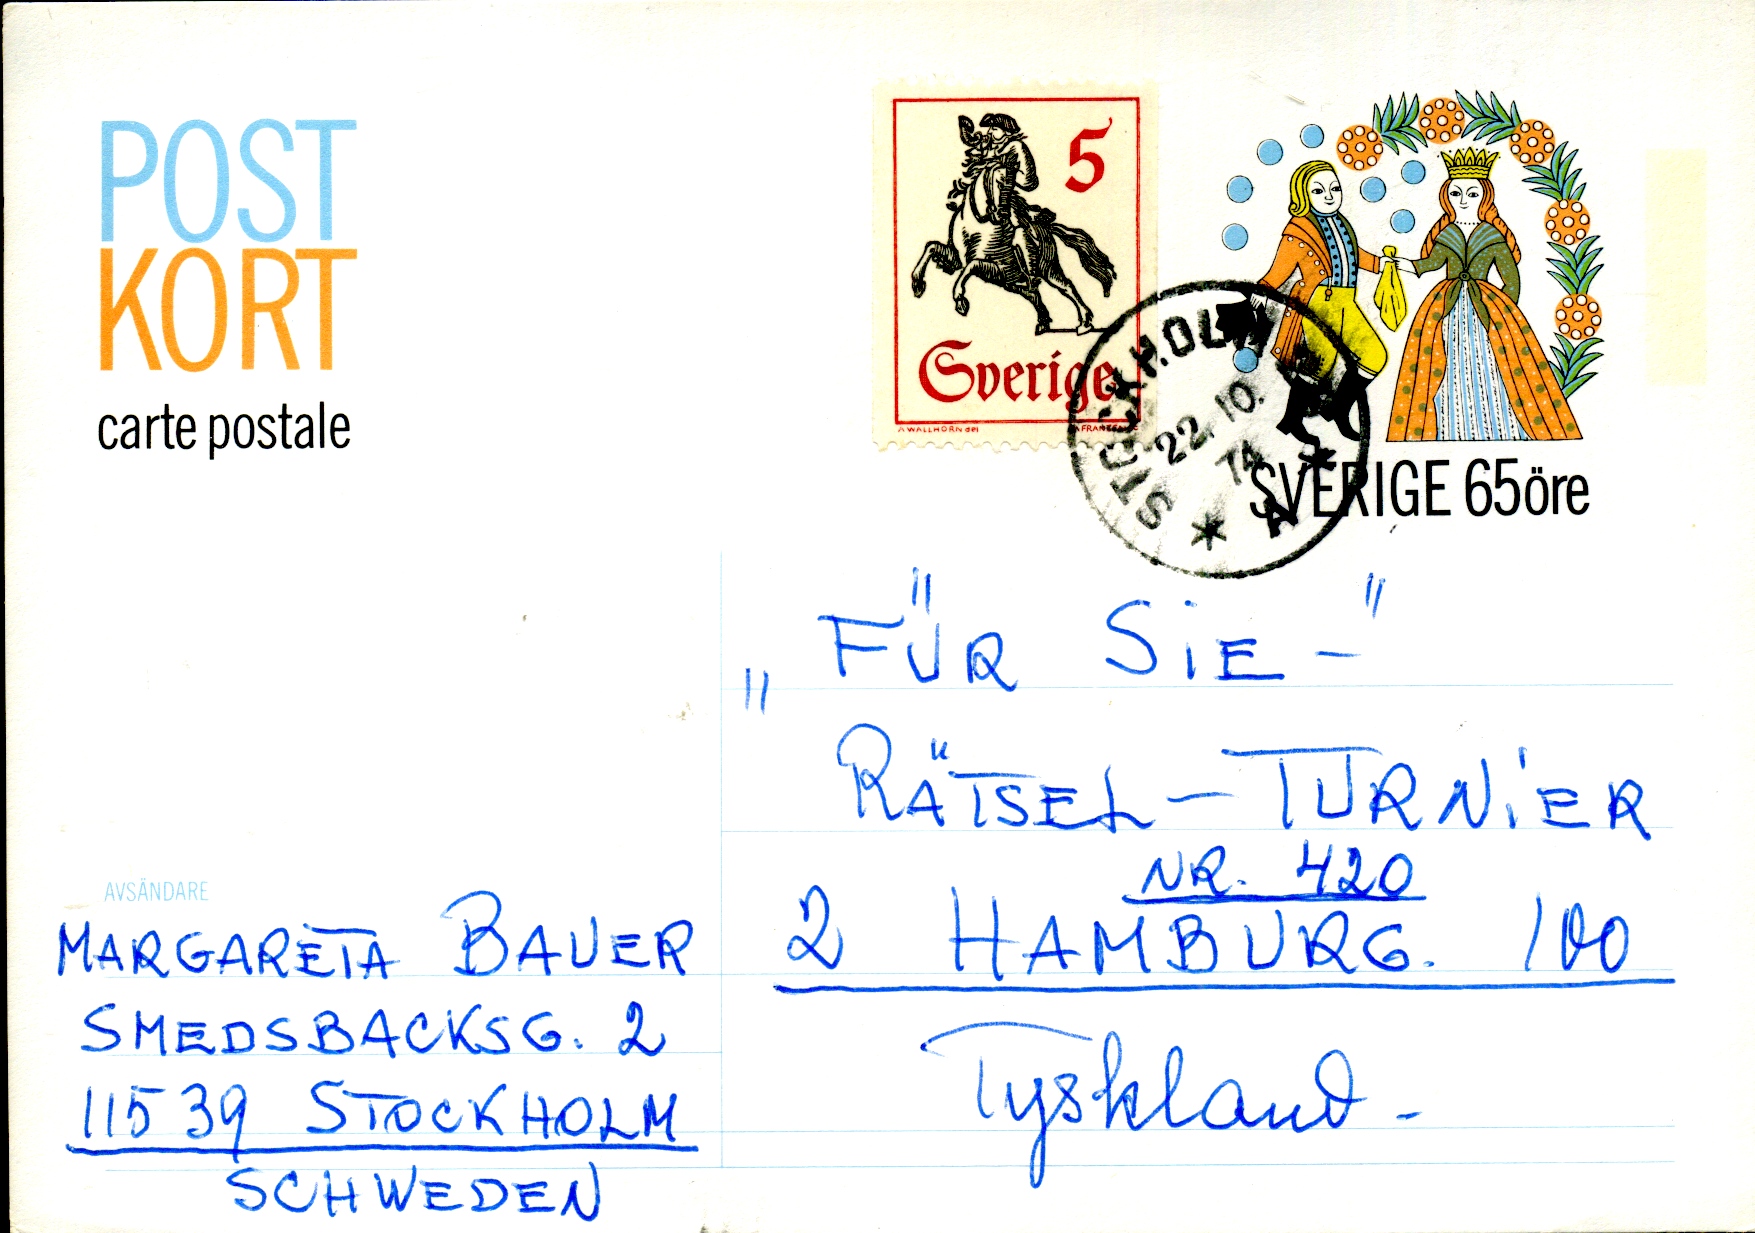 POST
KORT
carte postale
5
Sverige
A WALLHORN del
STOCKHOLM
22.10.
74
SVERIGE 65öre
"FÜR SIE-"
RÄTSEL-TURNIER
NR. 420
2 HAMBURG. 100
Tyskland-
AVSÄNDARE
MARGARETA BAUER
SMEDSBACKSG. 2
115 39 STOCKHOLM
SCHWEDEN